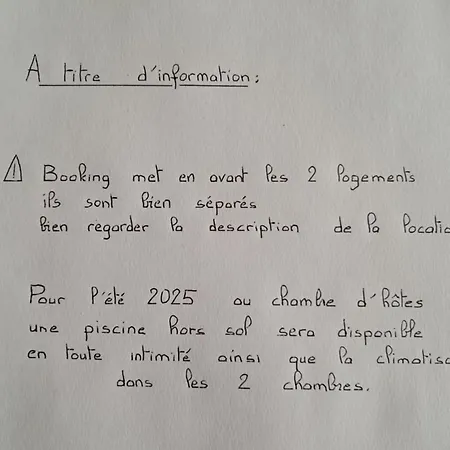 A titre d'information :
⚠ Booking met en avant les 2 logements
ils sont bien séparés
bien regarder la description de la locatio
Pour l'été 2025 au chambre d'hôtes
une piscine hors sol sera disponible
en toute intimité ainsi que la climatisa
dans les 2 chambres.